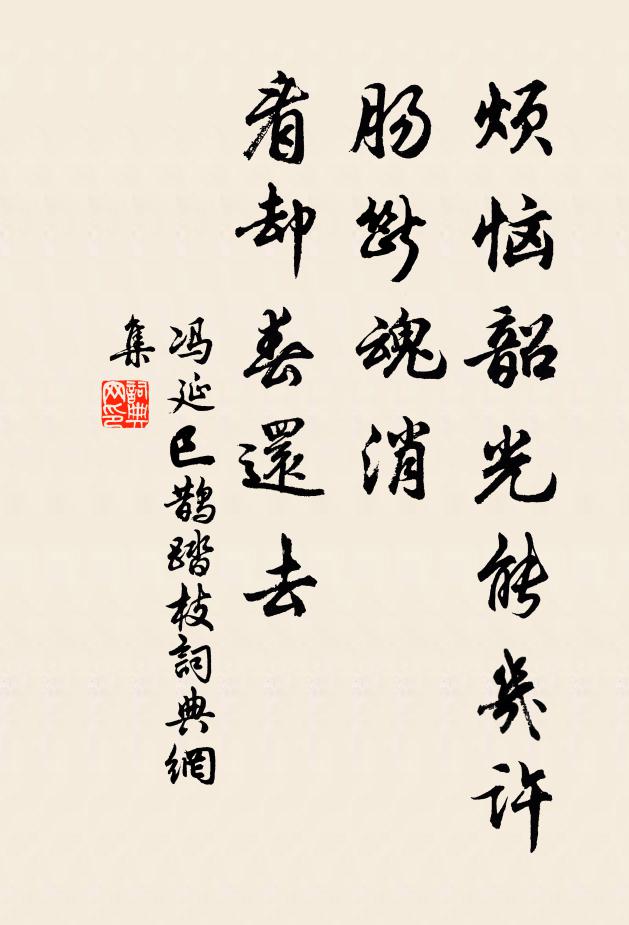 烦恼韶光能幾许
肠斷魂消
看却春還去
冯延巳鹊踏枝詞典網
集
詞典网印